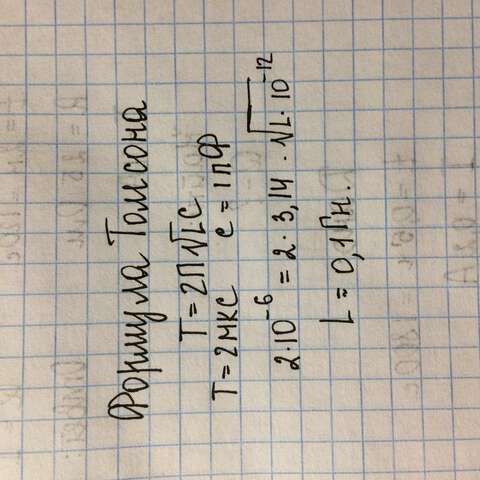 Формула Томсона
T = 2П√LC
T = 2мкс C = 1пФ
2·10⁻⁶ = 2·3,14·√L·10⁻¹²
L = 0,1Гн.